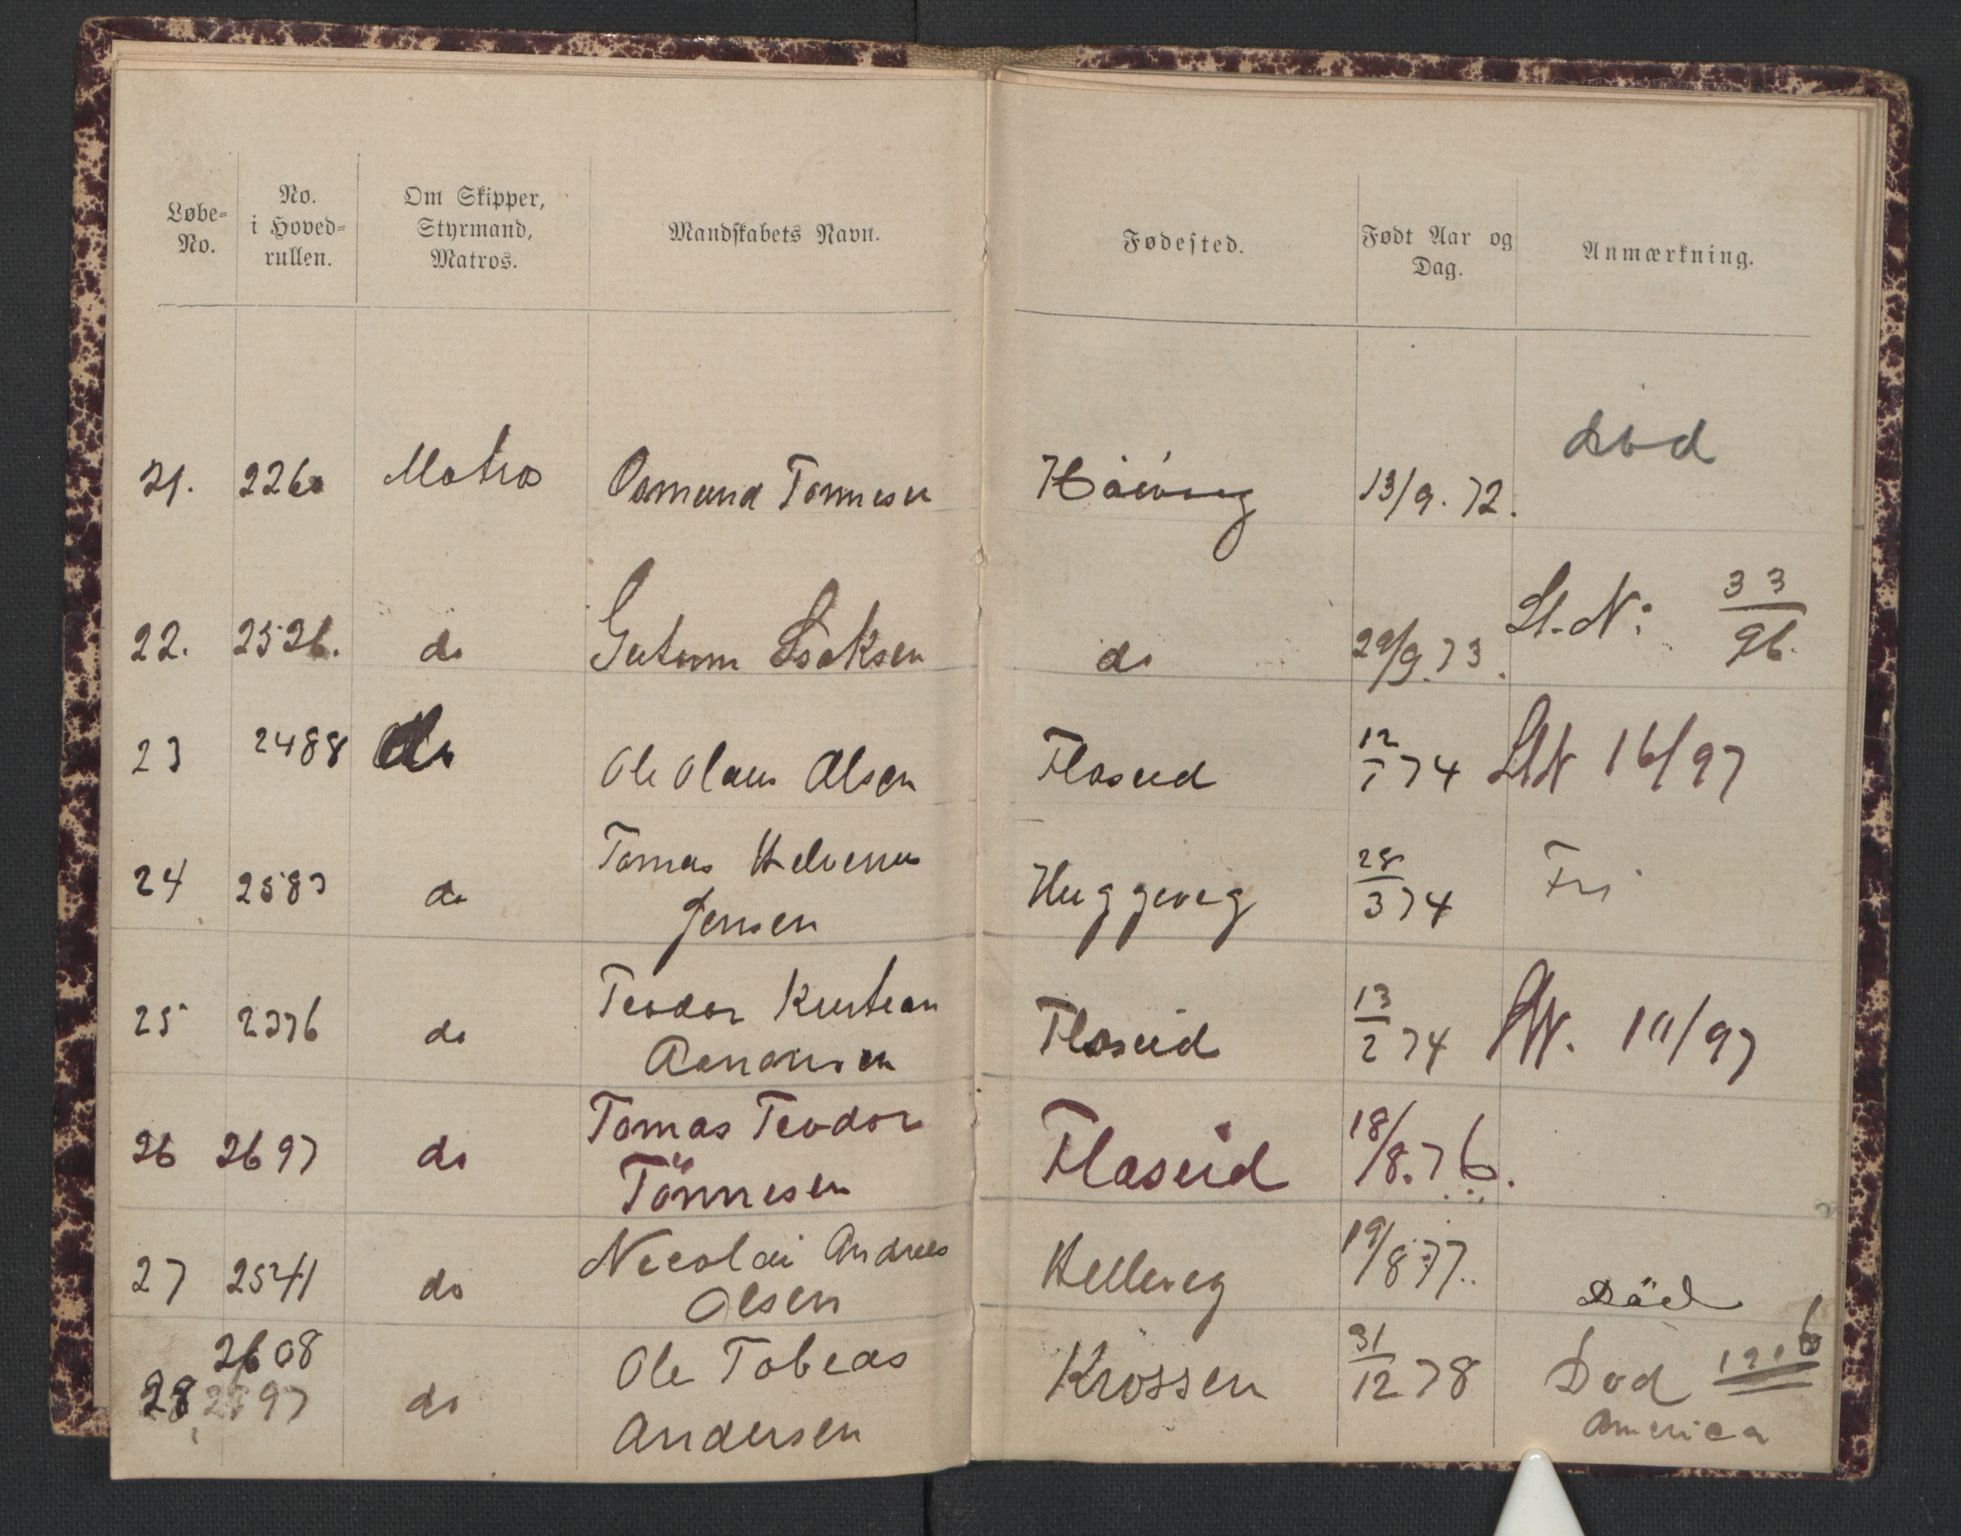 Løbe-No. No. i Hoved-rullen. Om Skipper, Styrmand, Matros. Mandskabets Navn. Fødested. Født Aar og Dag. Anmærkning.
21. 2260 Matros Osmund Tonnesen 13/9. 72. død
22. 2526. do Gutorm Isaksen do 29/9. 73. St. N: 33/96.
23 2488 do Ole Olaus Olsen Flaseid 12/1 74 StN 16/97
24 2583 do Tomas Helvenus
Jensen Huggeveg 28/3 74 Fri
25 2376 do Teodor Kristean
Flaseid 13/2 74 97
26 2697 do Tomas Teodor
Tönnesen Flaseid 18/8. 76.
27 2541 do Necolai Andreas
Olsen Helleveg 19/8 77. Död
2608
28 do Ole Tobeas
Andersen Krossen 31/12 78 Dod 1906
America